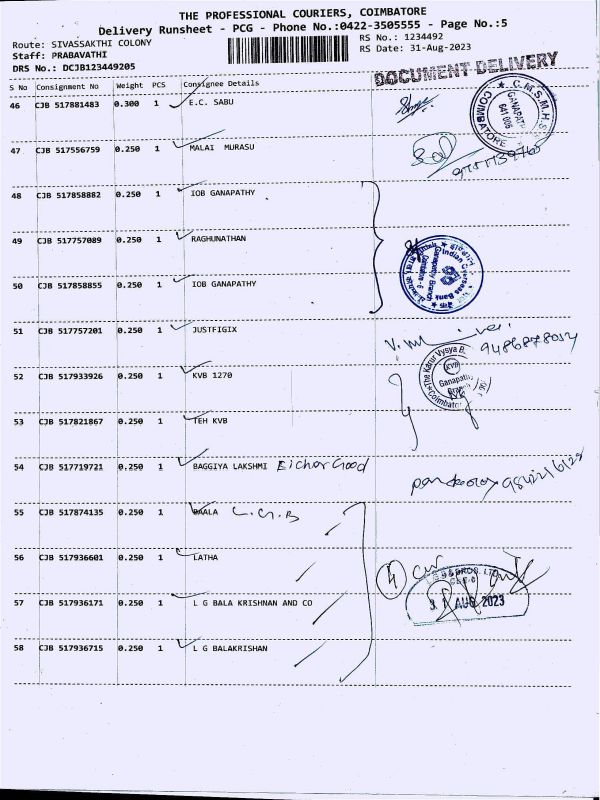 THE PROFESSIONAL COURIERS, COIMBATORE
Delivery Runsheet - PCG - Phone No.:0422-3505555 - Page No.:5
Route: SIVASSAKTHI COLONY
RS No.: 1234492
Staff: PRABAVATHI
RS Date: 31-Aug-2023
DRS No.: DCJB123449205
DOCUMENT DELIVERY
S No Consignment No Weight PCS Consignee Details
46 CJB 517881483 0.300 1 E.C. SABU
C.M.S.M.H.S.
GANAPATHY
641 006
COIMBATORE
47 CJB 517556759 0.250 1 MALAI MURASU
48 CJB 517858882 0.250 1 IOB GANAPATHY
49 CJB 517757089 0.250 1 RAGHUNATHAN
Indian Overseas Bank
Ganapathy Branch
50 CJB 517858855 0.250 1 IOB GANAPATHY
51 CJB 517757201 0.250 1 JUSTFIGIX
9486878014
The Karur Vysya B.
KVB
Ganapathy
Branch
Coimbator
52 CJB 517933926 0.250 1 KVB 1270
53 CJB 517821867 0.250 1 TEH KVB
54 CJB 517719721 0.250 1 BAGGIYA LAKSHMI Eichar Good
55 CJB 517874135 0.250 1 BAALA L.G.B
56 CJB 517936601 0.250 1 LATHA
4
& BROS. LTD
31 AUG 2023
57 CJB 517936171 0.250 1 L G BALA KRISHNAN AND CO
58 CJB 517936715 0.250 1 L G BALAKRISHAN